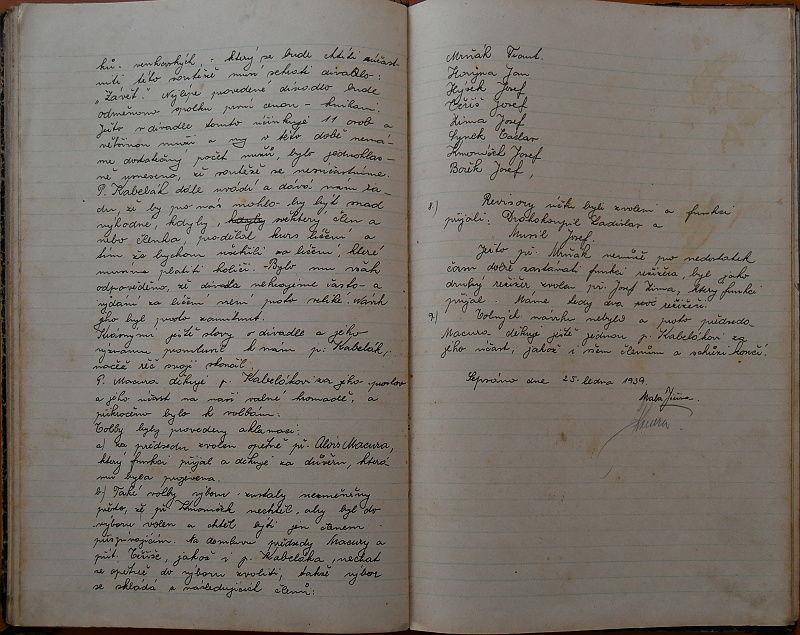 ků. venkovských, : který se bude chtíti súčast
niti této soutěže musí sehráti divadlo:
„Závěť." Nejlépe povedené divadlo bude
odměněno spolku první cenou – knihami.
Ježto v divadle tomto účinkuje 11 osob a
většinou mužů a my v této době nemá-
me dostatečný počet mužů, bylo jednohlas-
ně usneseno, že soutěže se nesúčastníme.
P. Kabelák dále uvádí a dává nám ra-
du, že by pro nás mohlo by být snad
výhodné, kdyby, kdyby některý člen a
nebo členka, podělal kurs líčení a
tím že bychom ušetřili za líčení, které
musíme platiti holiči. – Bylo mu však
odpověděno, že divadla nehrajeme často a
vydání za líčení není proto veliké. Návrh
jeho byl proto zamítnut.
Krásnými ještě slovy o divadle a jeho
významu promluvil k nám p. Kabelák,
načež řeč svoji skončil.
P. Macura děkuje p. Kabelákovi za jeho proslov
a jeho účast na naší valné hromadě, a
přikročeno bylo k volbám:
Volby byly provedeny aklamací:
a) za předsedu zvolen opětně př. Alois Macura,
který funkci přijal a děkuje za důvěru, která
mu byla projevena.
b) Také volby výboru zůstaly nezměněny
přesto, že př. Kmoníček nechtěl, aby byl do
výboru volen a chtěl býti jen členem
přispívajícím. Na domluvu předsedy Macury a
přít. Těříše, jakož i p. Kabeláka, nechal
se opětně do výboru zvoliti, takže výbor
se skládá z následujících členů:
Mrňák Frant.
Horyna Jan
Hýsek Josef
Těříš Josef
Zima Josef
Synek Václav
Kmoníček Josef
Borek Josef,
8.) Revisory účtů byli zvoleni a funkci
přijali: Drahokoupil Ladislav a
Musil Josef
Ježto př. Mrňák nemůže pro nedostatek
času dobře zastávati funkci režiséra, byl jako
druhý režisér zvolen př. Josef Zima, který funkci
přijal. Máme tedy dva režiséři.
9.) Volných návrhů nebylo a proto předseda
Macura děkuje ještě jednou p. Kabelákovi za
jeho účast, jakož i všem členům a schůzi končí.
Sepsáno dne 25. ledna 1939.
Malá Jiřina.
Macura